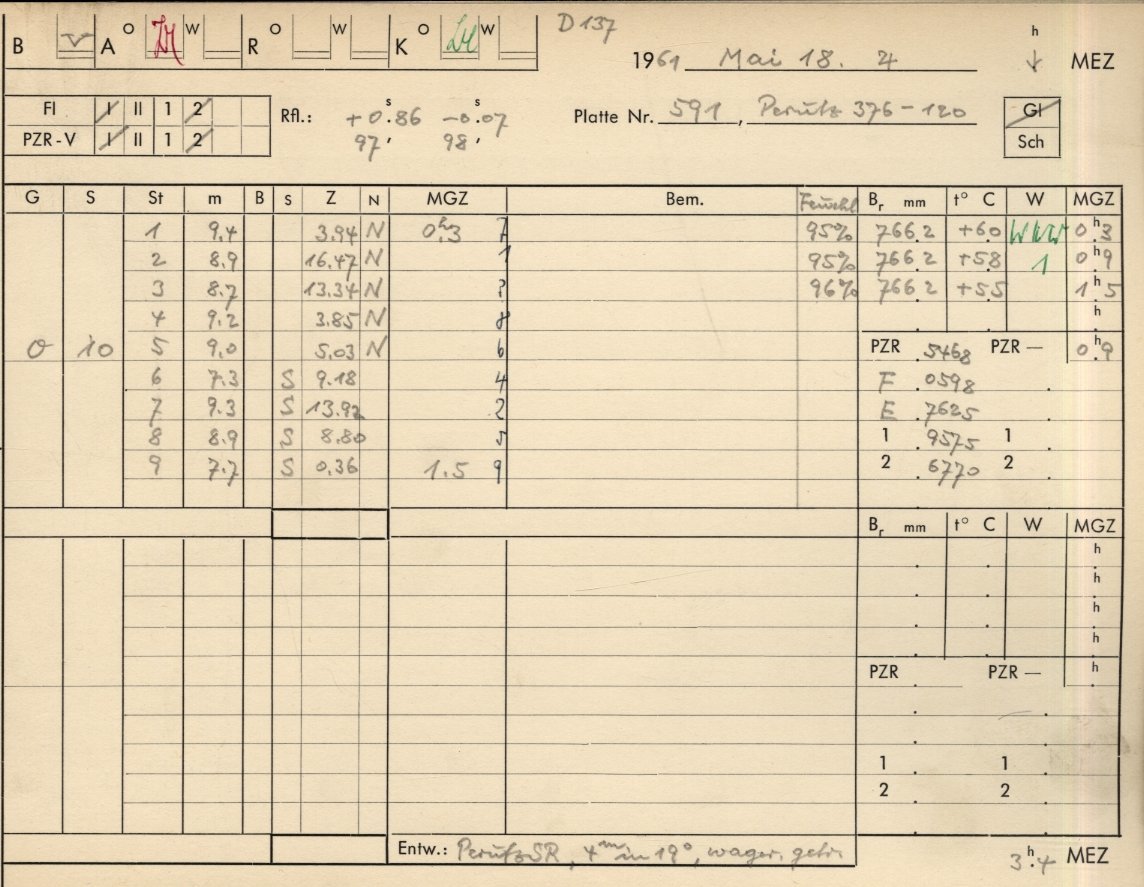 D 137
B A O W R O W K O W
1961 Mai 18. 4 h MEZ
FI I II 1 2
PZR-V I II 1 2
Rfl.: +0.86 s -0.07 s
97, 98,
Platte Nr. 591, Perutz 376-120
Gl
Sch
G S St m B S Z N MGZ Bem. Feucht Br mm t° C W MGZ
1 9.4 3.94 N 0h.3 7 95% 766.2 +6.0 WNW 0h.3
2 8.9 16.47 N 1 95% 766.2 +5.8 1 0h.9
3 8.7 13.34 N 3 96% 766.2 +5.5 1h.5
4 9.2 3.85 N 8 h
0 10 5 9.0 5.03 N 6 PZR .5468 PZR — 0h.9
6 7.3 S 9.18 4 F .0598
7 9.3 S 13.92 2 E .7625
8 8.9 S 8.80 5 1 .9575 1
9 7.7 S 0.36 1.5 9 2 .6770 2
Br mm t° C W MGZ
h
h
h
h
PZR PZR — h
1 1
2 2
Entw.: Perutz SR, 4m in 19°, wager. getr.
3h.4 MEZ